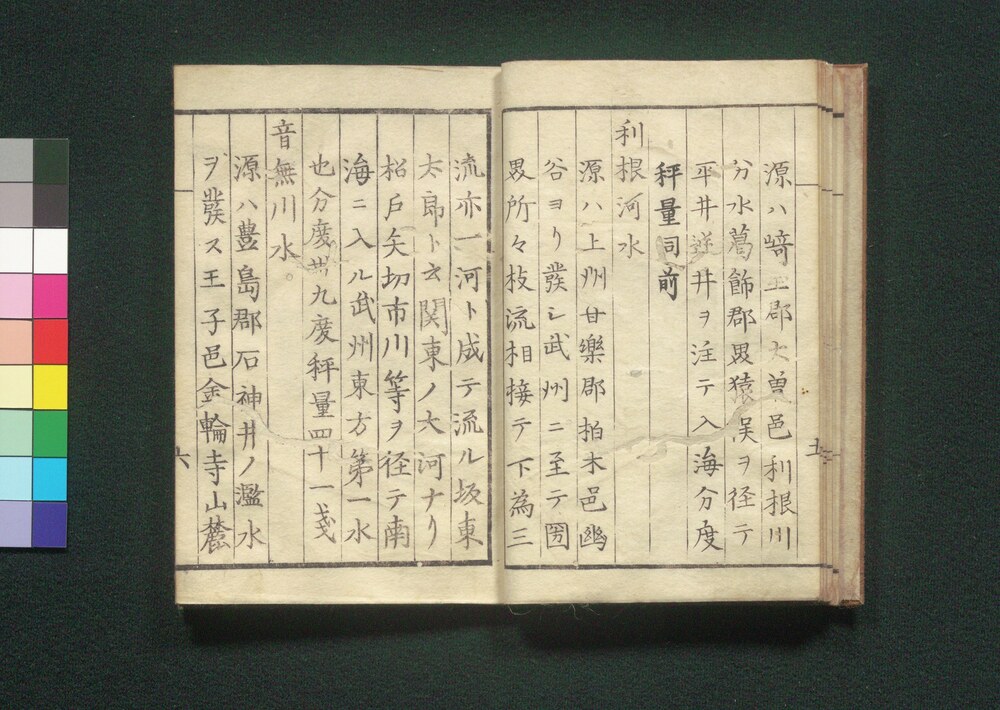 源ハ﨑玉郡大曽邑利根川
分水葛飾郡界猿罠ヲ径テ
平井逆井ヲ注テ入海分度
秤量同前
利根河水
源ハ上州甘樂郡柏木邑幽
谷ヨリ發シ武州ニ至テ圀
界所々枝流相接テ下為三
五
流亦一河ト成テ流ル坂東
太郎ト云関東ノ大河ナリ
松戸矢切市川等ヲ径テ南
海ニ入ル武州東方第一水
也分度卅九度秤量四十一戔
音無川水。
源ハ豊島郡石神井ノ濫水
ヲ發ス王子邑金輪寺山麓
六